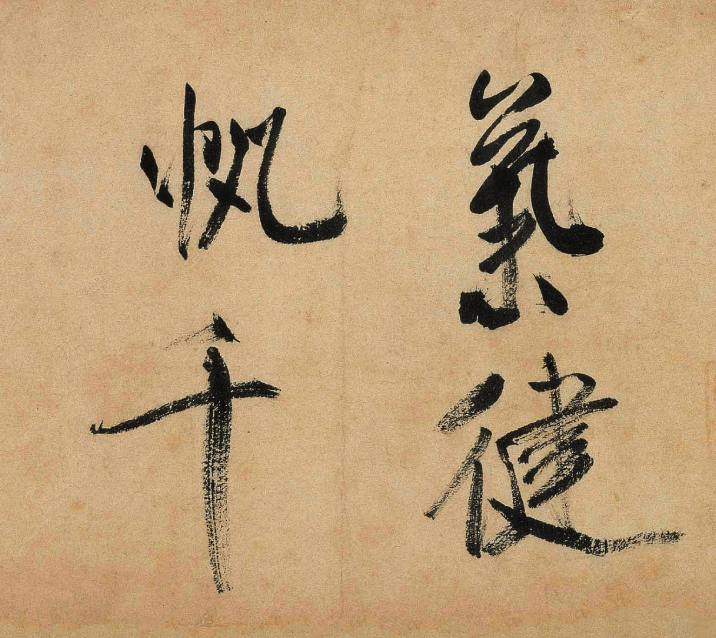 氣健
帆千